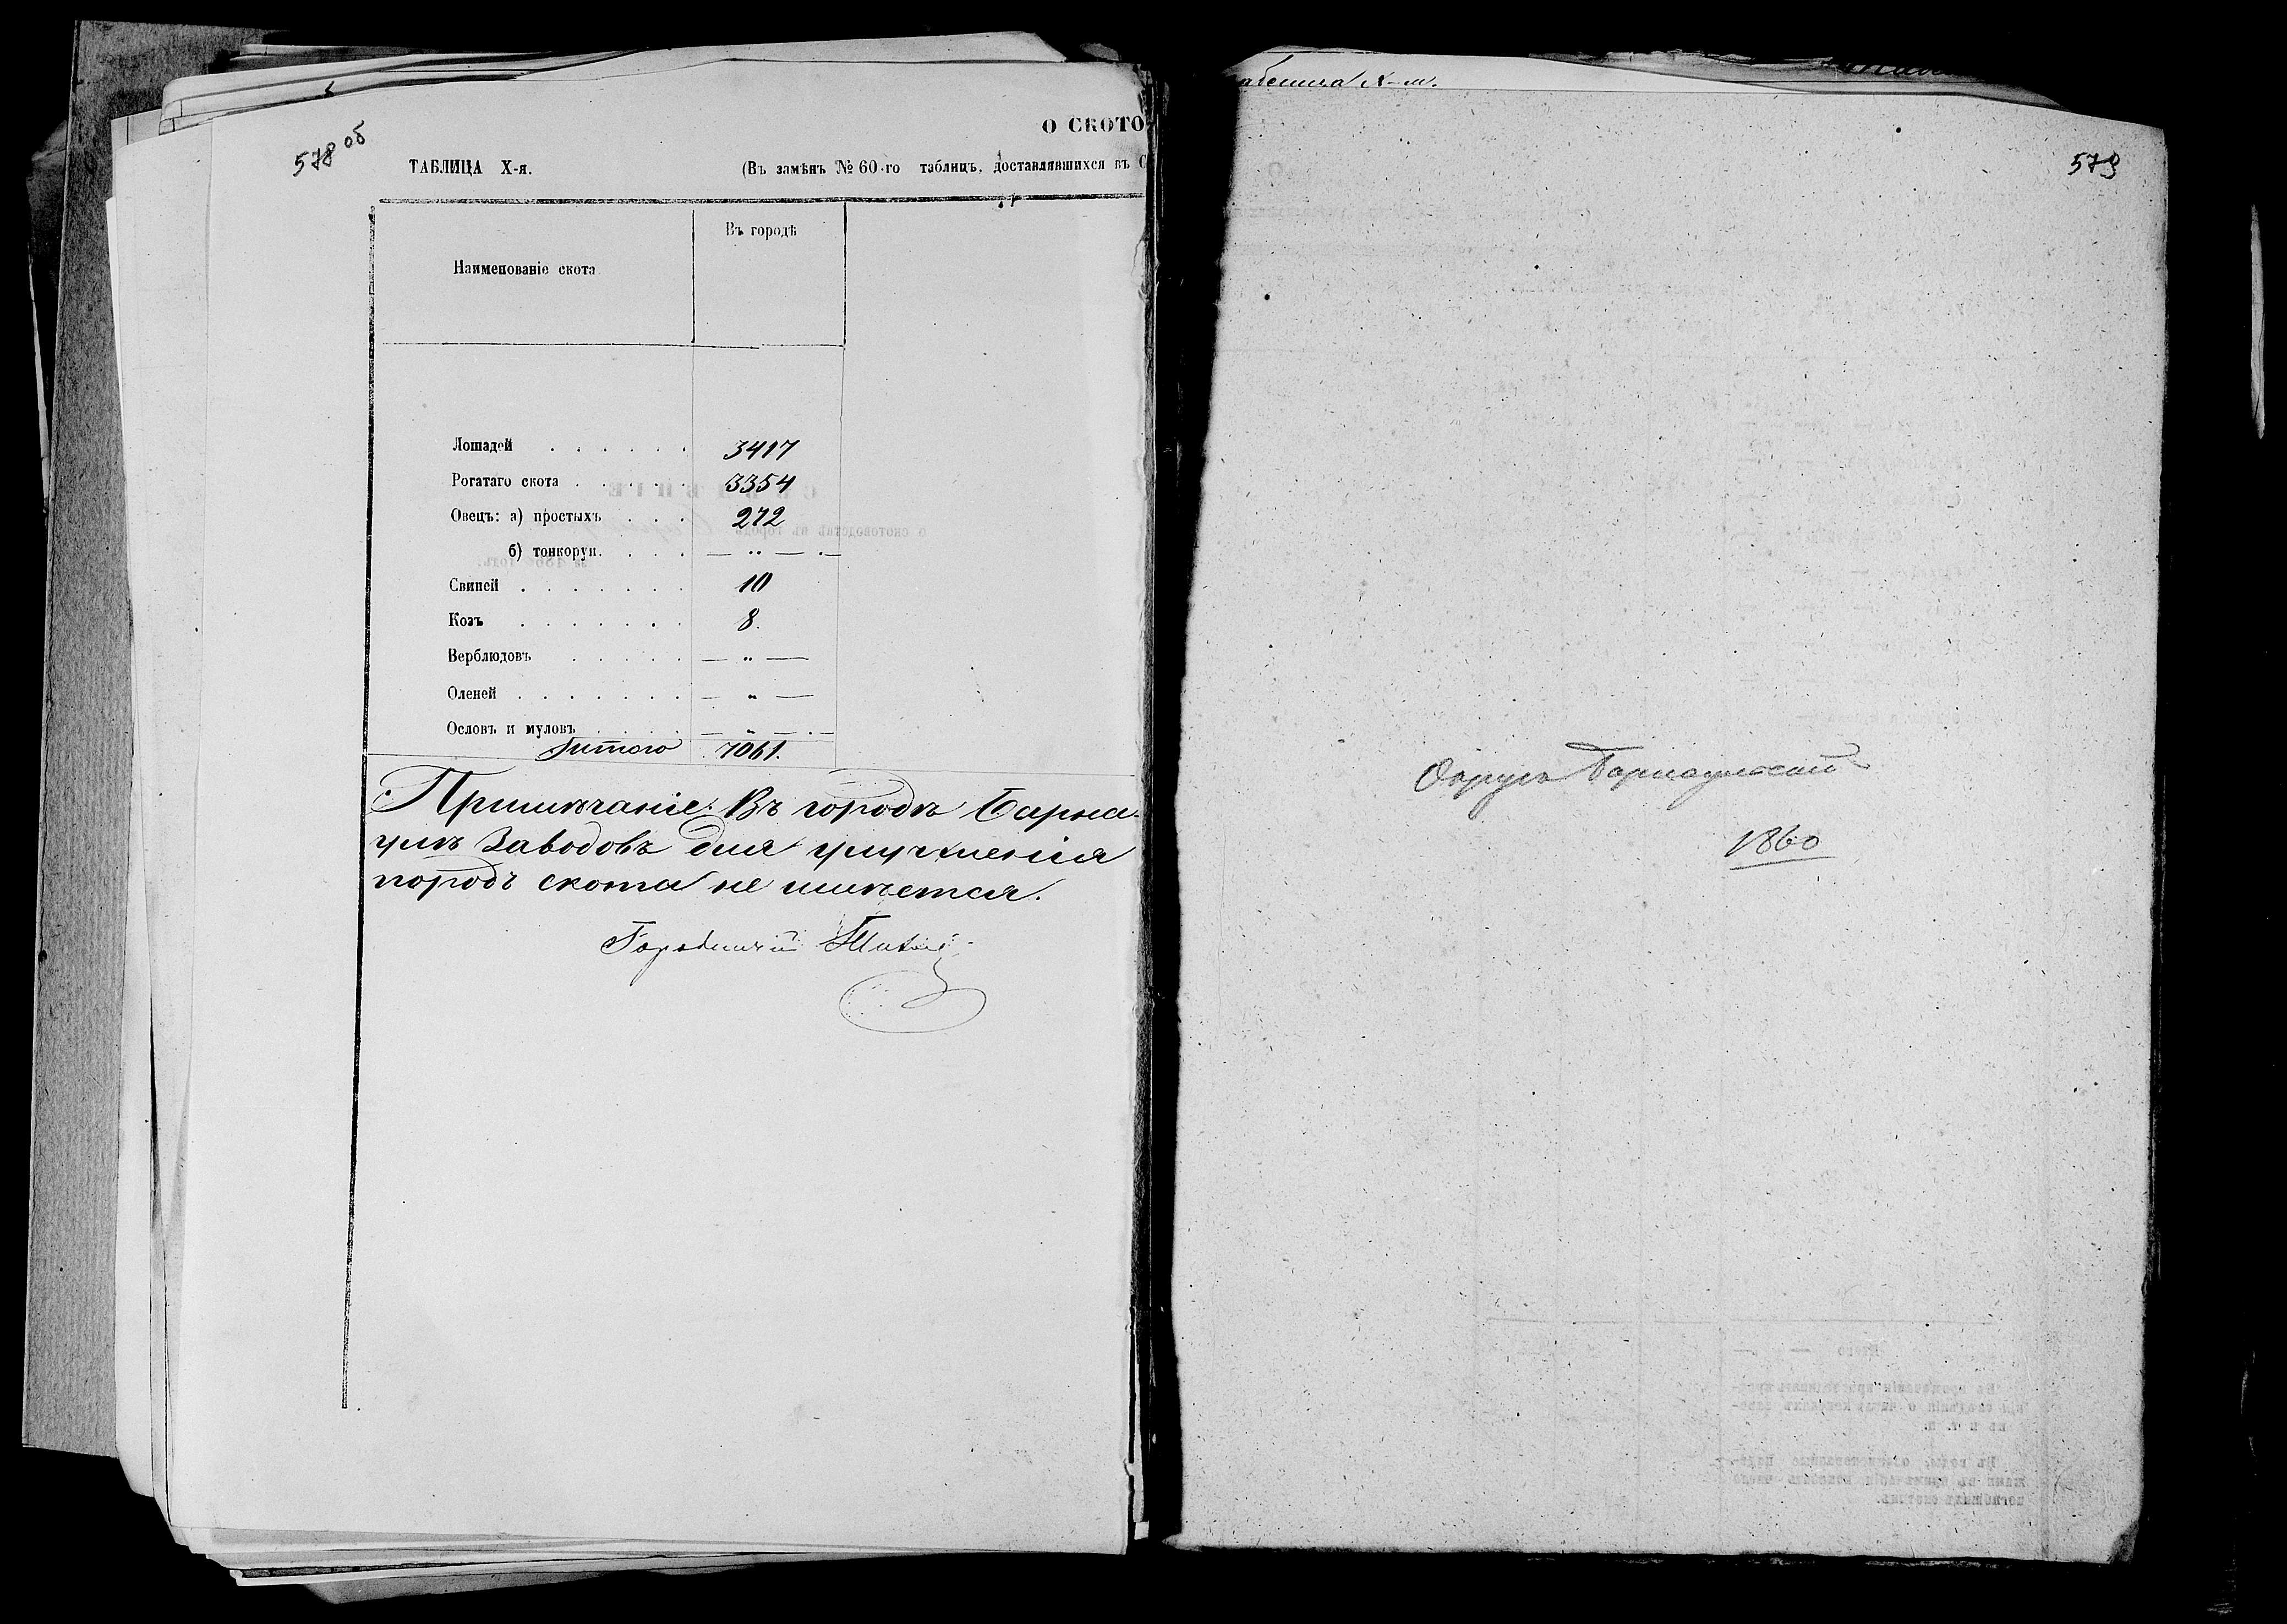 578 об
О СКОТО
ТАБЛИЦА X-я.
(Въ замѣнъ № 60-го таблицъ, доставлявшихся въ С
Наименованіе скота
Въ городѣ
Лошадей . . . . . . 3417
Рогатаго скота . . . . . 3354
Овецъ: а) простыхъ . . . 272
б) тонкорун. . . . — „ —
Свиней . . . . . . . 10
Козъ . . . . . . . 8.
Верблюдовъ . . . . . — „ —
Оленей . . . . . . . — „ —
Ословъ и муловъ . . . . — „ —
Итого 7061.
Примѣчаніе: Въ городѣ Барна-
улѣ Заводовъ для улучшенія
породъ скота не имѣется.
Городничій
аблица X-я.
579
Округъ Барнаульскій
1860